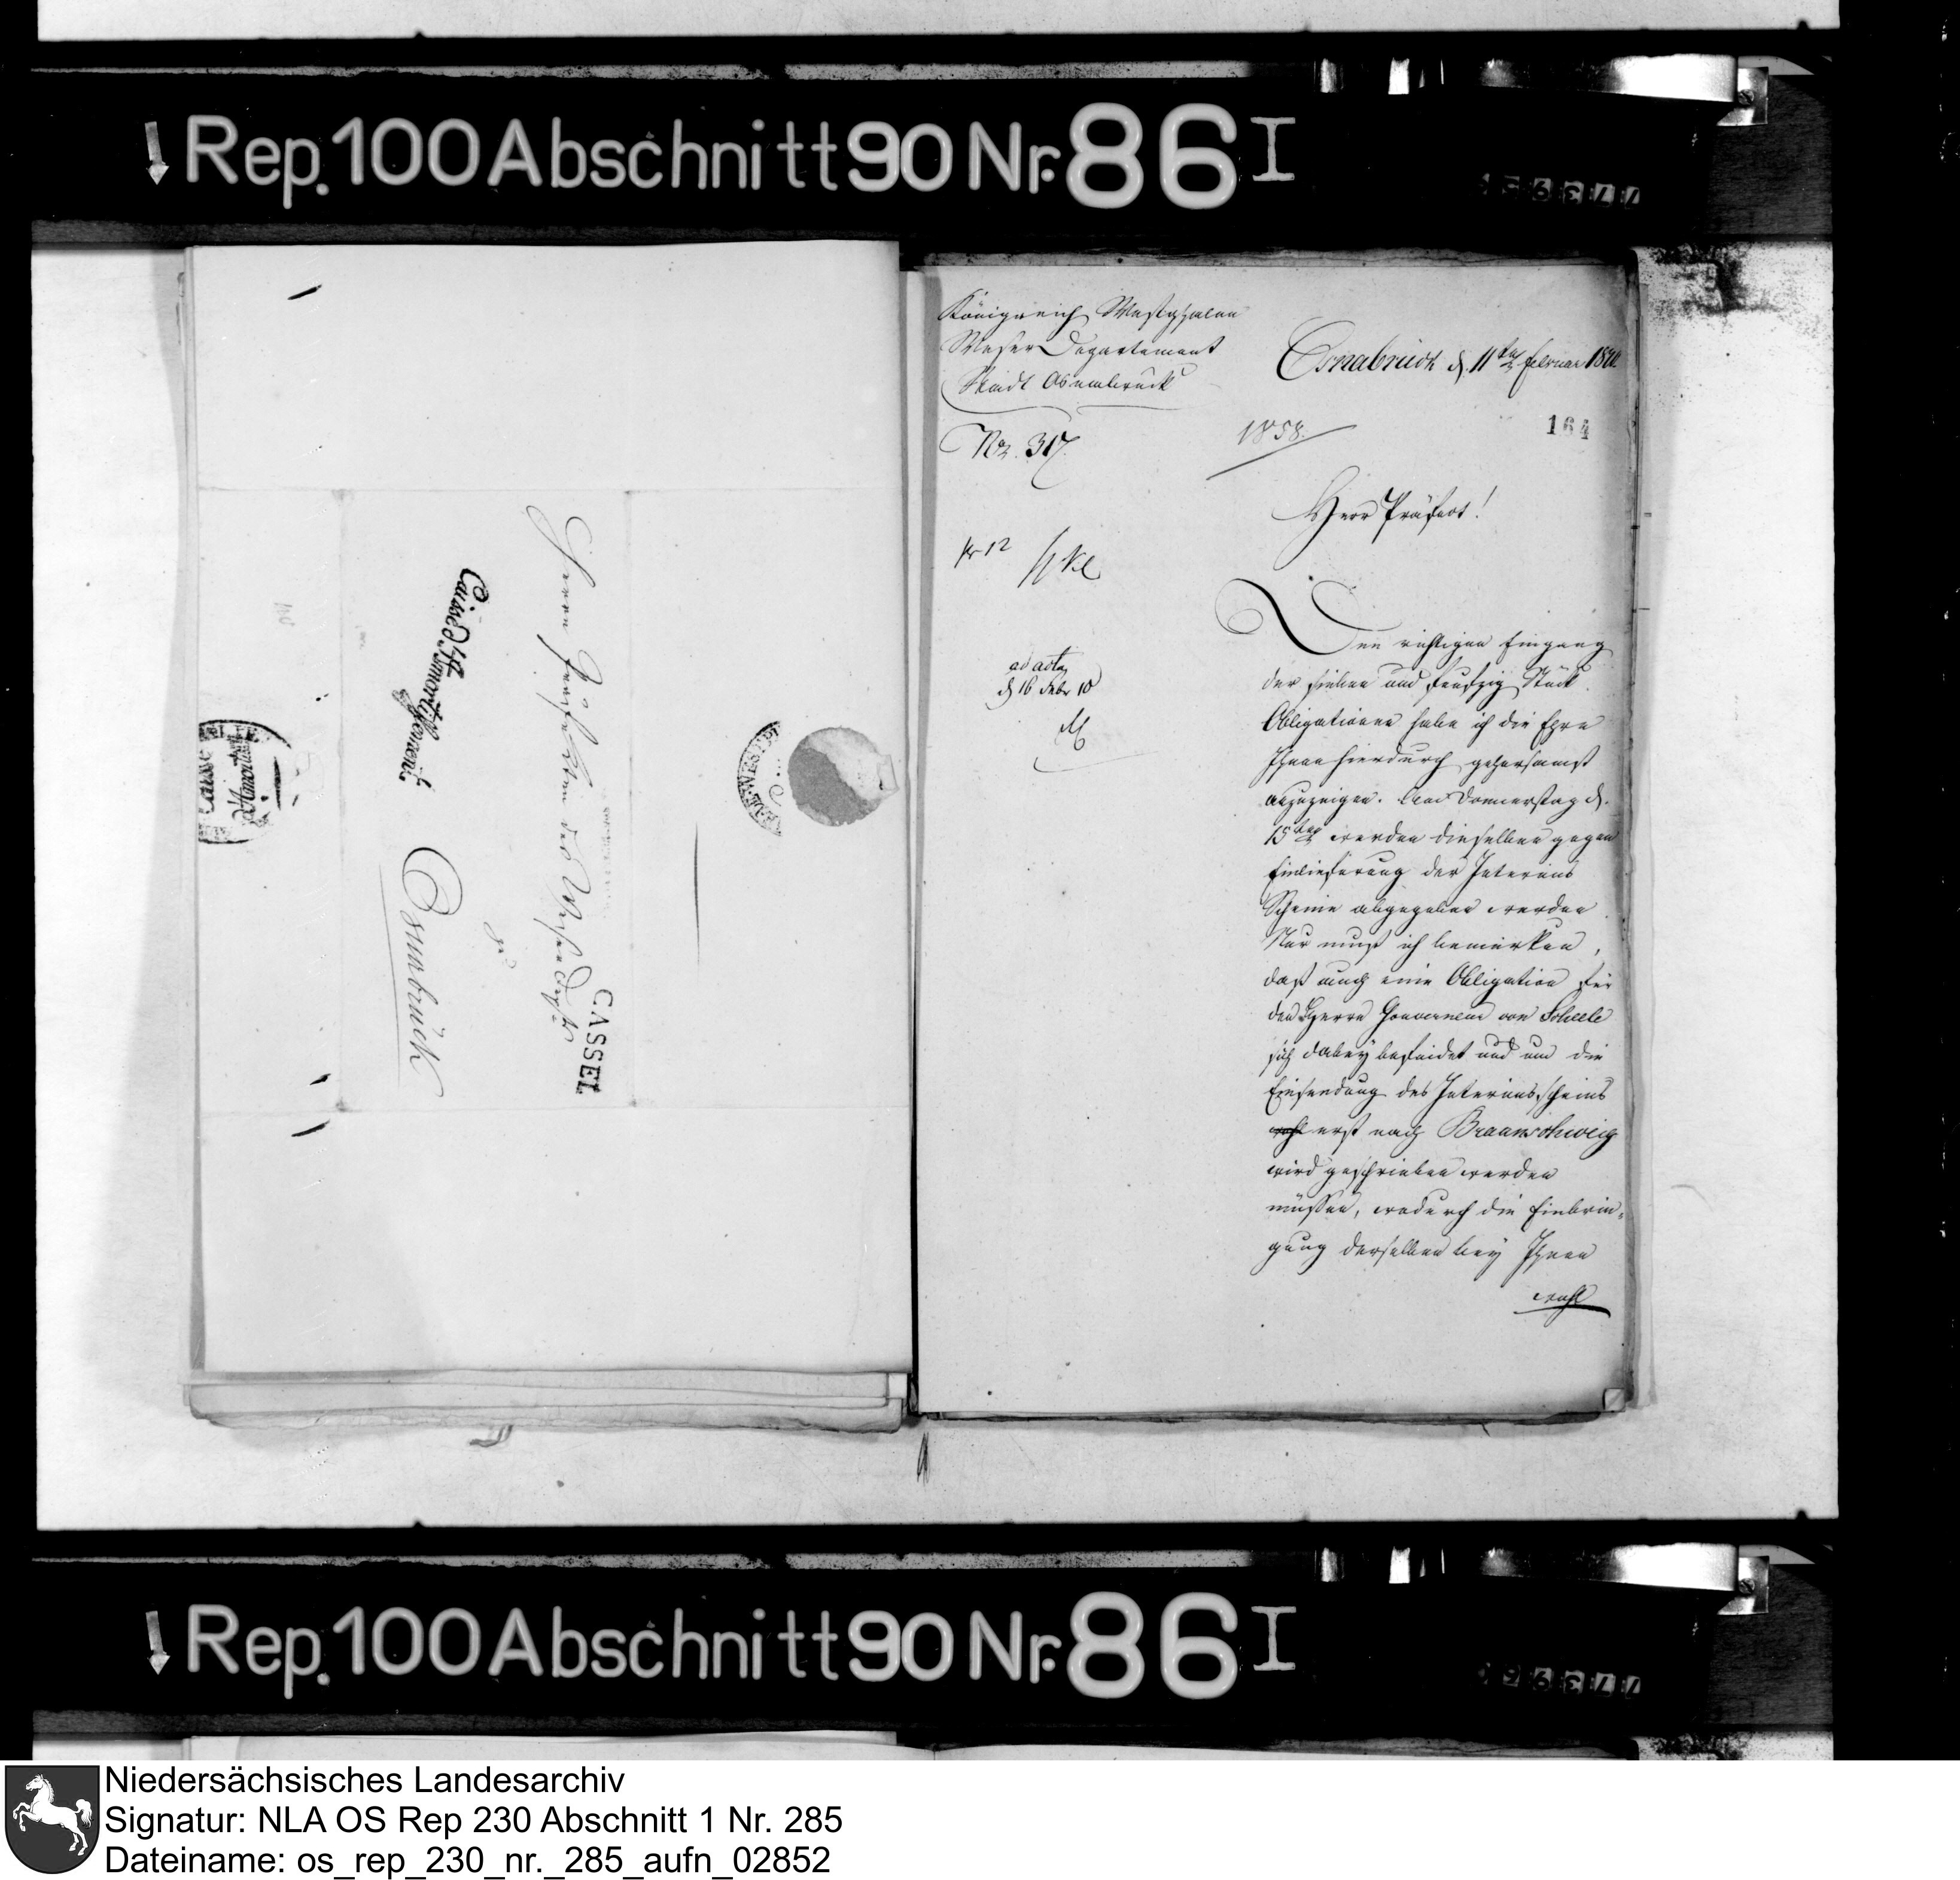 Rep. 100 Abschnitt 90 Nr. 86 I
Herrn Präfecten des Weser Depts
zu
Osnabrück
Caisse d'Amortissement
CASSEL
Königreich Westphalen
Weser Departement
Stadt Osnabrück
No. 317.
Osnabrück d. 11ten Februar 1810.
1858.
164
Herr Präfect!
pr 12
ad acta
d 16 Febr 10
Den richtigen Eingang
der sieben und funfzig Stück
Obligationen habe ich die Ehre
Ihnen hierdurch gehorsamst
anzuzeigen. Am Donnerstag d.
15ten werden dieselben gegen
Einlieferung der Interims
Scheine abgegeben werden.
Nur muß ich bemerken,
daß auch eine Obligation für
den Herrn Gouverneur von Scheele
sich dabey befindet und um die
Einsendung des Interimsscheins
wohl erst nach Braunschweig
wird geschrieben werden
müssen, wodurch die Einbrin-
gung derselben bey Ihnen
wohl
Rep. 100 Abschnitt 90 Nr. 86 I
Niedersächsisches Landesarchiv
Signatur: NLA OS Rep 230 Abschnitt 1 Nr. 285
Dateiname: os_rep_230_nr._285_aufn_02852